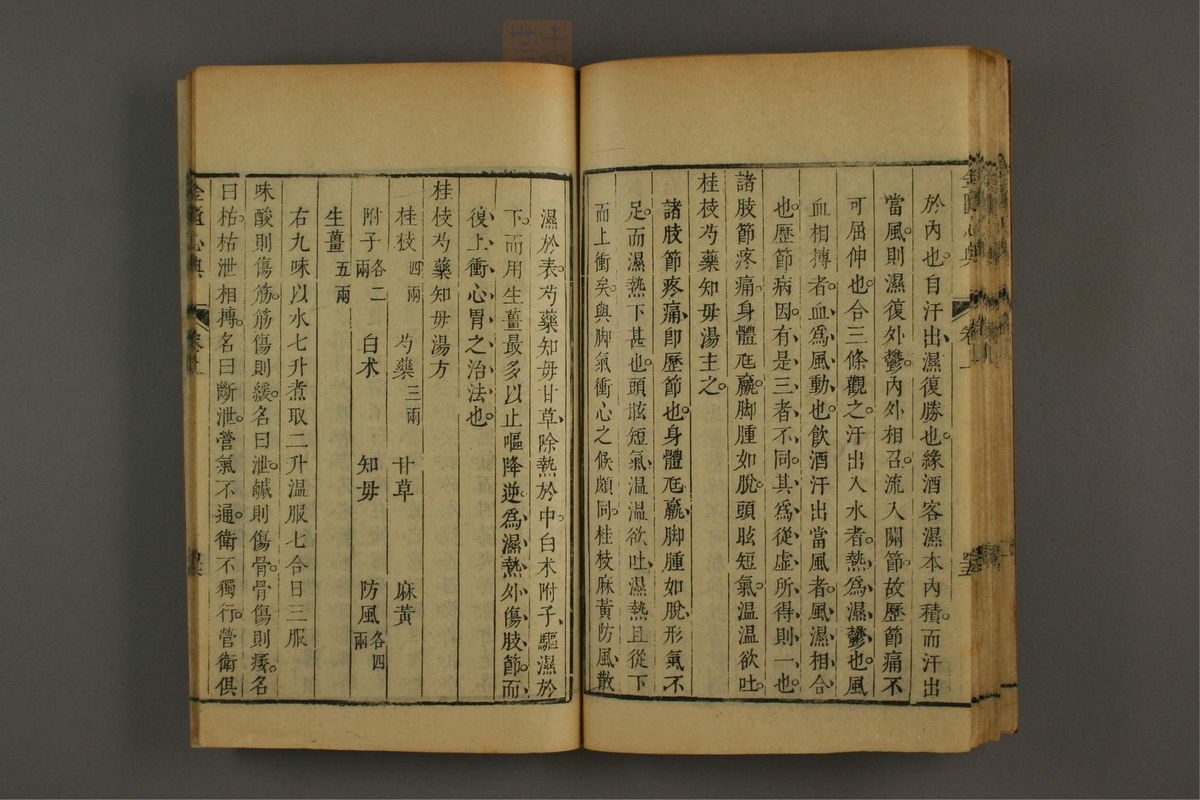 於內也。自汗出、濕復勝也、緣酒客濕本內積。而汗出
當風、則濕復外鬱。內外相召。流入關節。故歷節痛不
可屈伸也。合三條觀之。汗出入水者。熱爲濕鬱也。風
血相搏者。血爲風動也。飲酒汗出當風者。風濕相合
也。歷節病因、有是三者、不同。其、爲從虛所得、則一也
諸肢節疼痛。身體尫羸。脚腫如脫。頭眩短氣。溫溫欲吐。
桂枝芍藥知毋湯主之。
諸肢節疼痛、卽歷節也。身體尫羸、脚腫如脫、形氣不
足。而濕熱下甚也。頭眩短氣、溫溫欲吐、濕熱且從下
而上衝矣。與脚氣衝心之候頗同。桂枝麻黃防風、散
濕於表。芍藥知毋甘草、除熱於中。白朮附子、驅濕於
下。而用生薑最多、以止嘔降逆。爲濕熱外傷肢節。而
復上衝心胃之治法也。
桂枝芍藥知毋湯方
桂枝四兩 芍藥三兩 甘草 麻黃
附子各二兩 白朮 知毋 防風各四兩
生薑五兩
右九味以水七升煮取二升溫服七合日三服
味酸則傷筋。筋傷則緩。名曰泄。鹹則傷骨。骨傷則痿。名
曰枯。枯泄相搏。名曰斷泄。營氣不通。衛不獨行。營衛俱
金匱心典